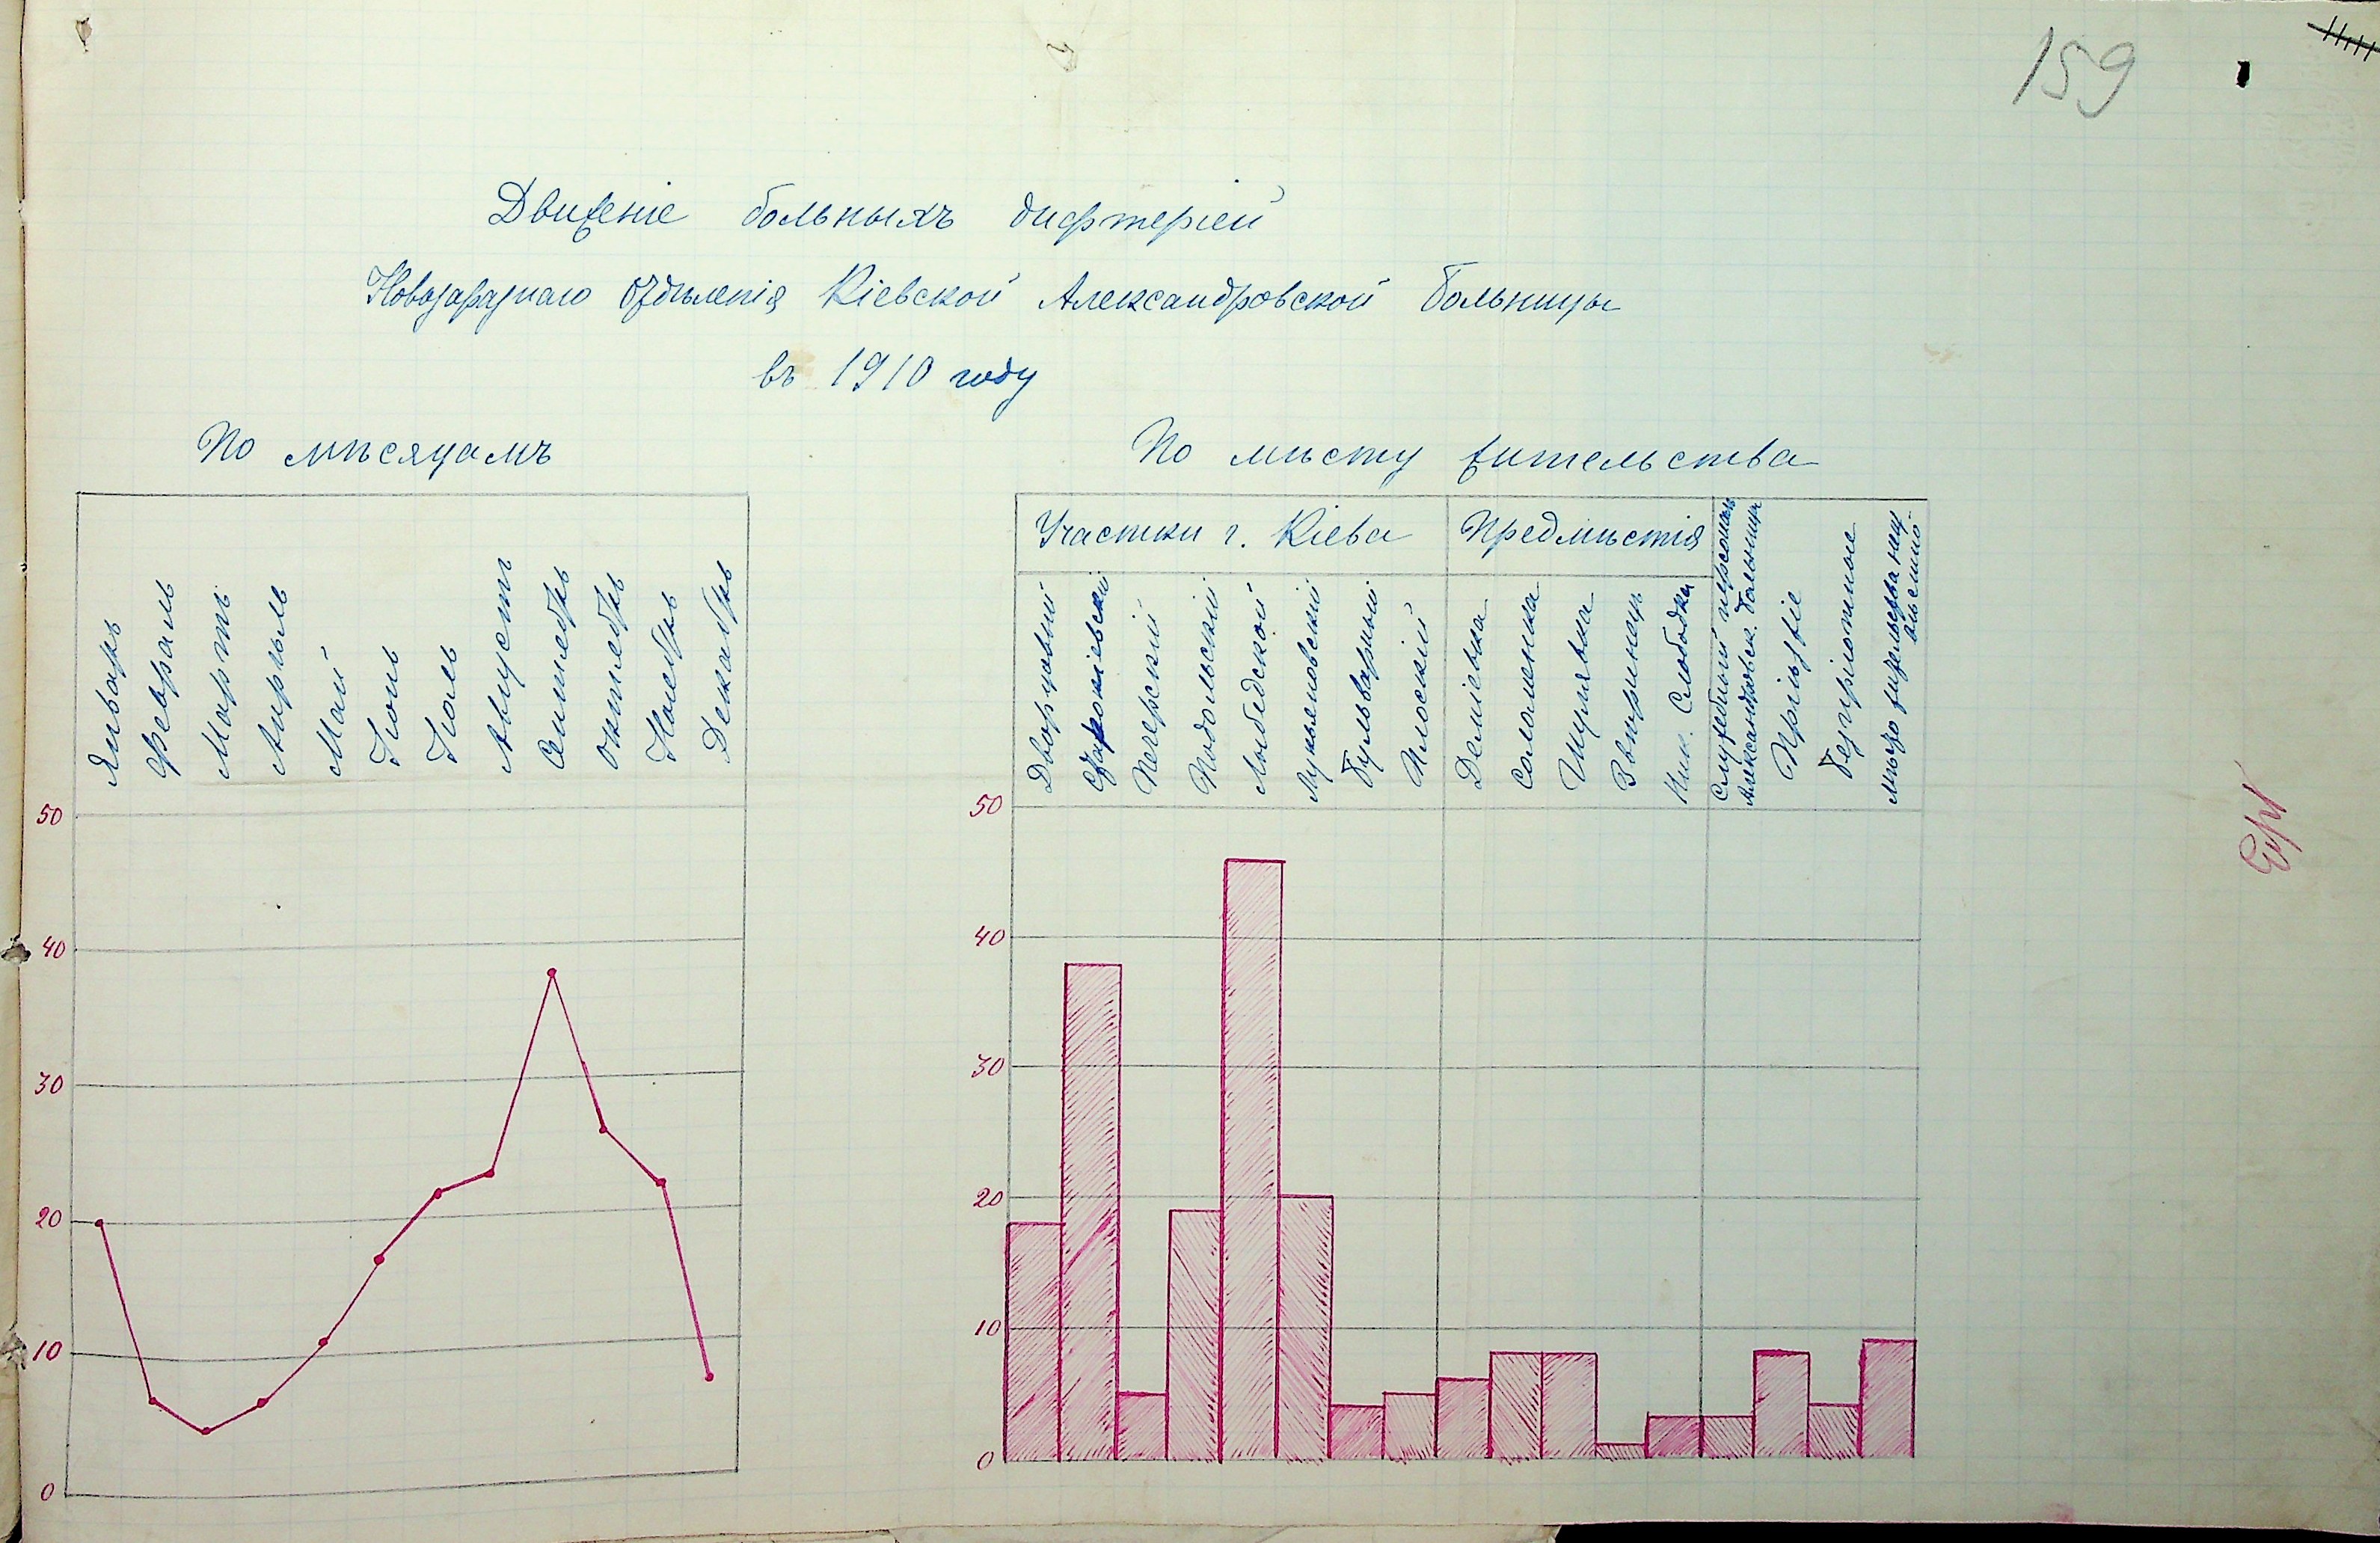 159
Движеніе больныхъ дифтеріей
Новозаразнаго Отдѣленія Кіевской Александровской Больницы
въ 1910 году
По мѣсяцамъ
Январь
Февраль
Мартъ
Апрѣль
Май
Іюнь
Іюль
Августъ
Сентябрь
Октябрь
Ноябрь
Декабрь
50
40
30
20
10
0
По мѣсту жительства
Участки г. Кіева
Предмѣстія
Дворцовый
Старокіевскій
Печерскій
Подольскій
Лыбедской
Лукьяновскій
Бульварный
Плоскій
Деміевка
Соломенка
Шулявка
Звѣринецъ
Ник. Слободка
Служебный персоналъ
Александровск. больницы
Пріѣзжіе
Безпріютные
Мѣсто жительства неиз-
вѣстно
50
40
30
20
10
0